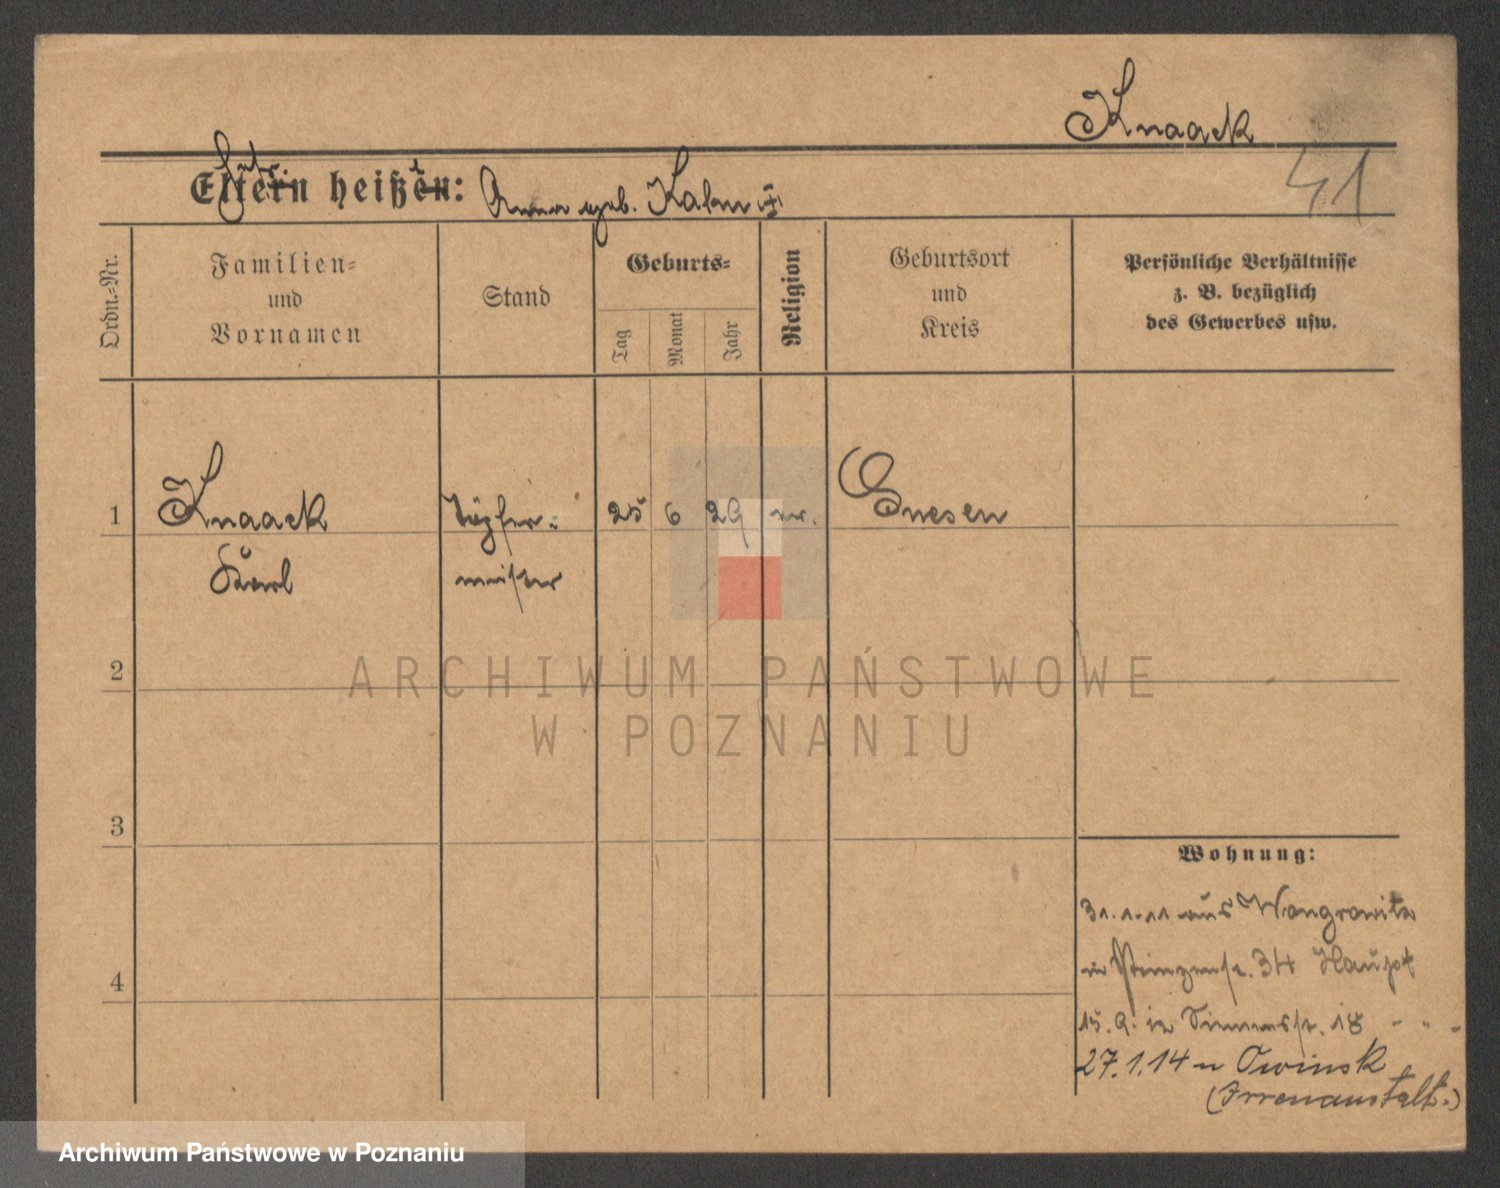 Knaack
41
Eltern heißen: Anna geb. Kahn
Ordn.-Nr.
Familien-
und
Vornamen
Stand
Geburts-
Tag
Monat
Jahr
Religion
Geburtsort
und
Kreis
Persönliche Verhältnisse
z. B. bezüglich
des Gewerbes usw.
1
Knaack
Töpfer-
25 6 29
Gnesen
Karl
meister
2
ARCHIWUM PAŃSTWOWE
W POZNANIU
3
Wohnung:
31.1.11 aus Wongrowitz
in Prinzenstr. 34 Haupt
4
15.9. in 18 - - -
27.1.14 n Owinsk
(Irrenanstalt.)
Archiwum Państwowe w Poznaniu